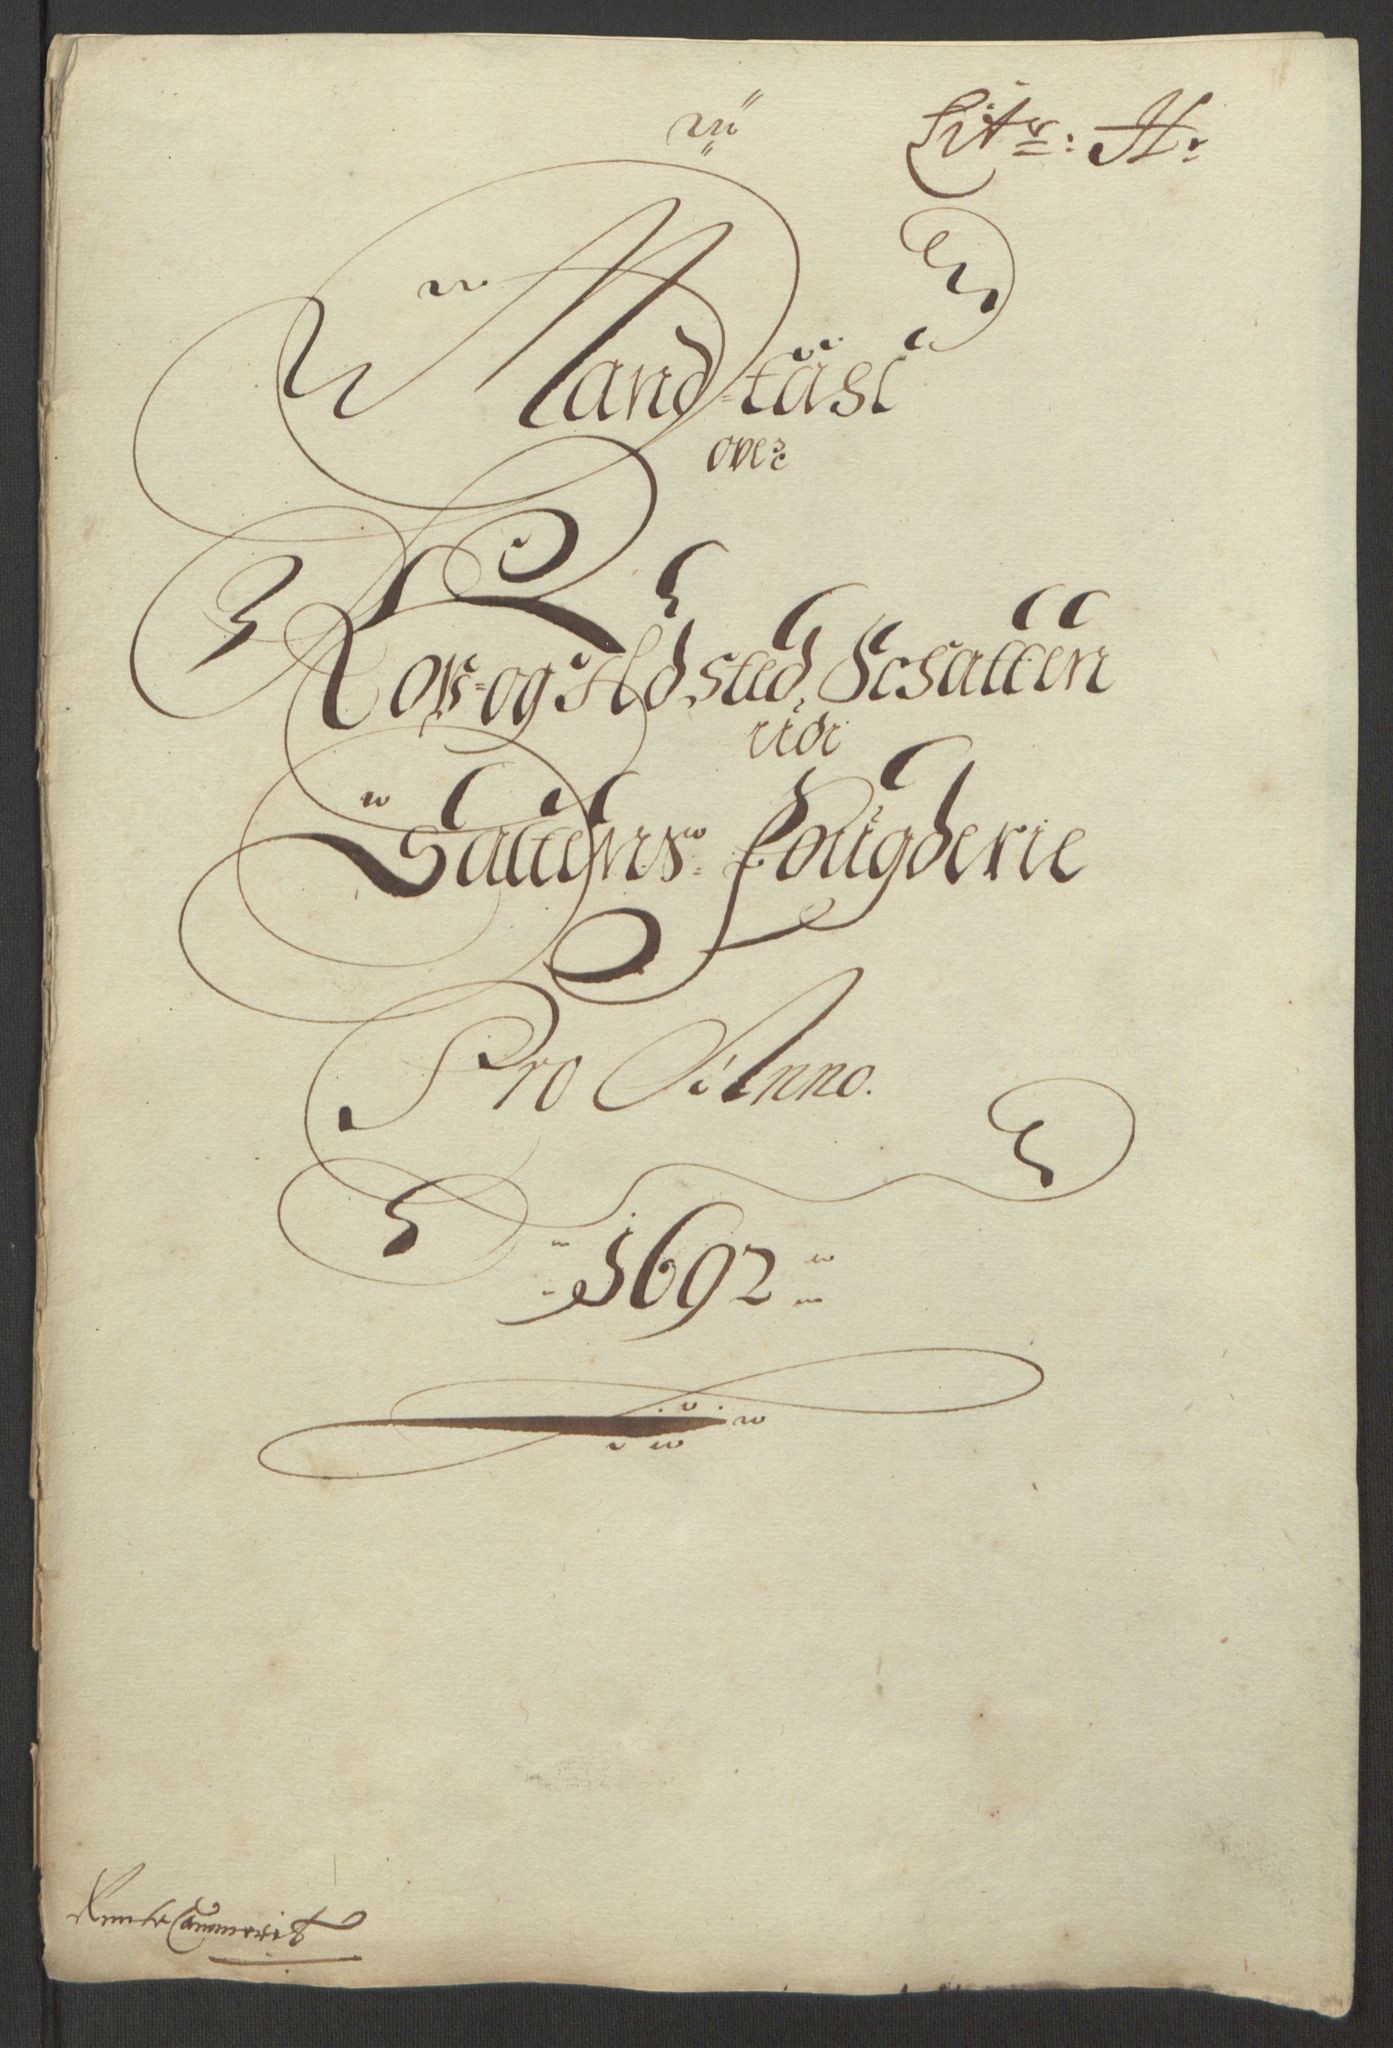 Litr: H.
Mandtall
over
Kop- og Ildsted Schatten
udi
Saltens Fougderie
Pro Anno.
1692
RenteCammerit